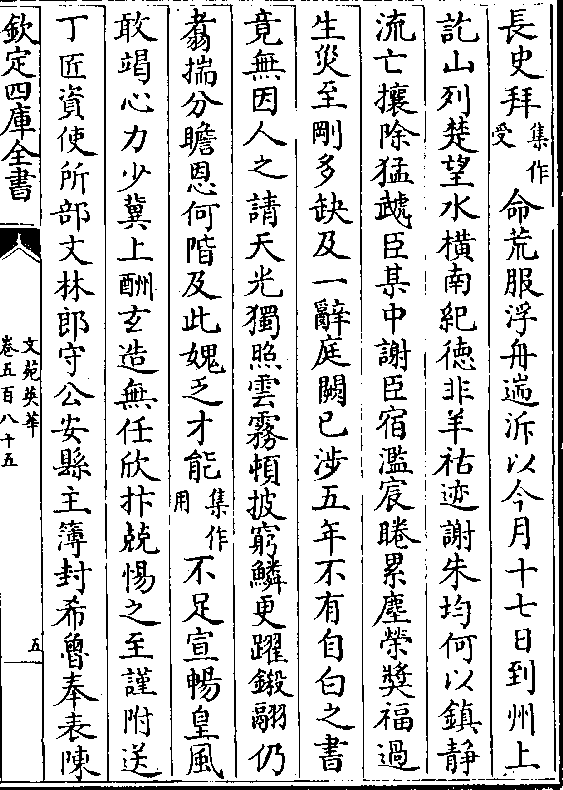 長史拜集作受命荒服浮舟遄泝以今月十七日到州上
訖山列楚望水橫南紀德非羊祜迹謝朱均何以鎮静
流亡攘除猛虣臣某中謝臣宿濫宸睠累塵榮奬福過
生災至剛多缺及一辭庭闕已涉五年不有自白之書
竟無因人之請天光獨照雲霧頓披窮鱗更躍鎩翮仍
翥揣分瞻恩何階及此媿乏才能集作用不足宣暢皇風
敢竭心力少冀上酬玄造無任欣抃兢惕之至謹附送
丁匠資使所部文林郎守公安縣主簿封希魯奉表陳
欽定四庫全書
文苑英華
卷五百八十五
五